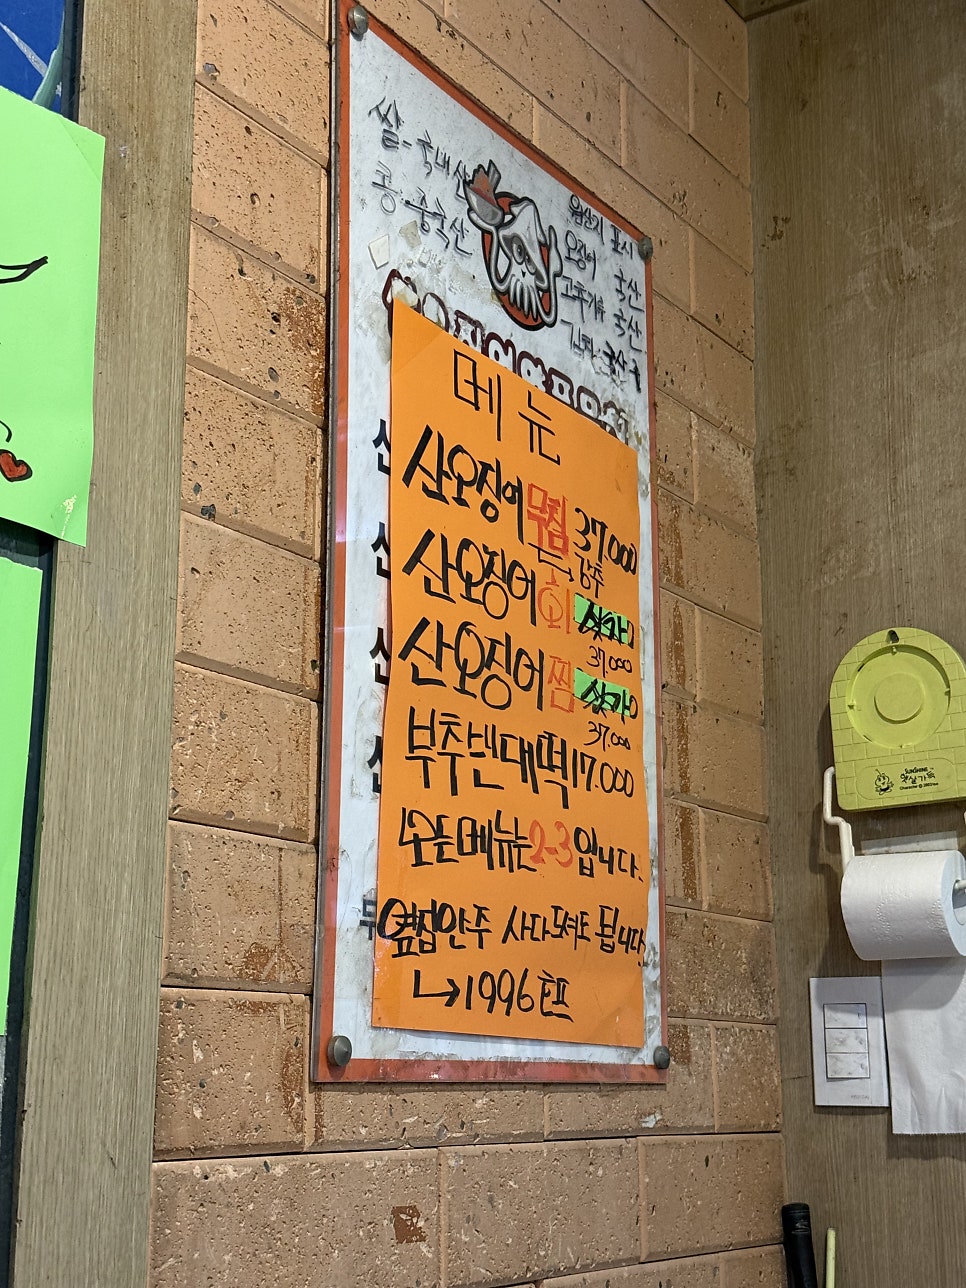 쌀-국내산
콩-중국산
원산지 표시
오징어 국산
고추가루 국산
김치 국산
메뉴
산오징어무침 37,000
강추
산오징어회 싯가
37.000
산오징어찜 싯가
37.000
부추빈대떡 17.000
모든메뉴는 2-3입니다.
옆집안주 사다드셔도 됩니다.
↳1996호프
SUNSHINE
햇살가득